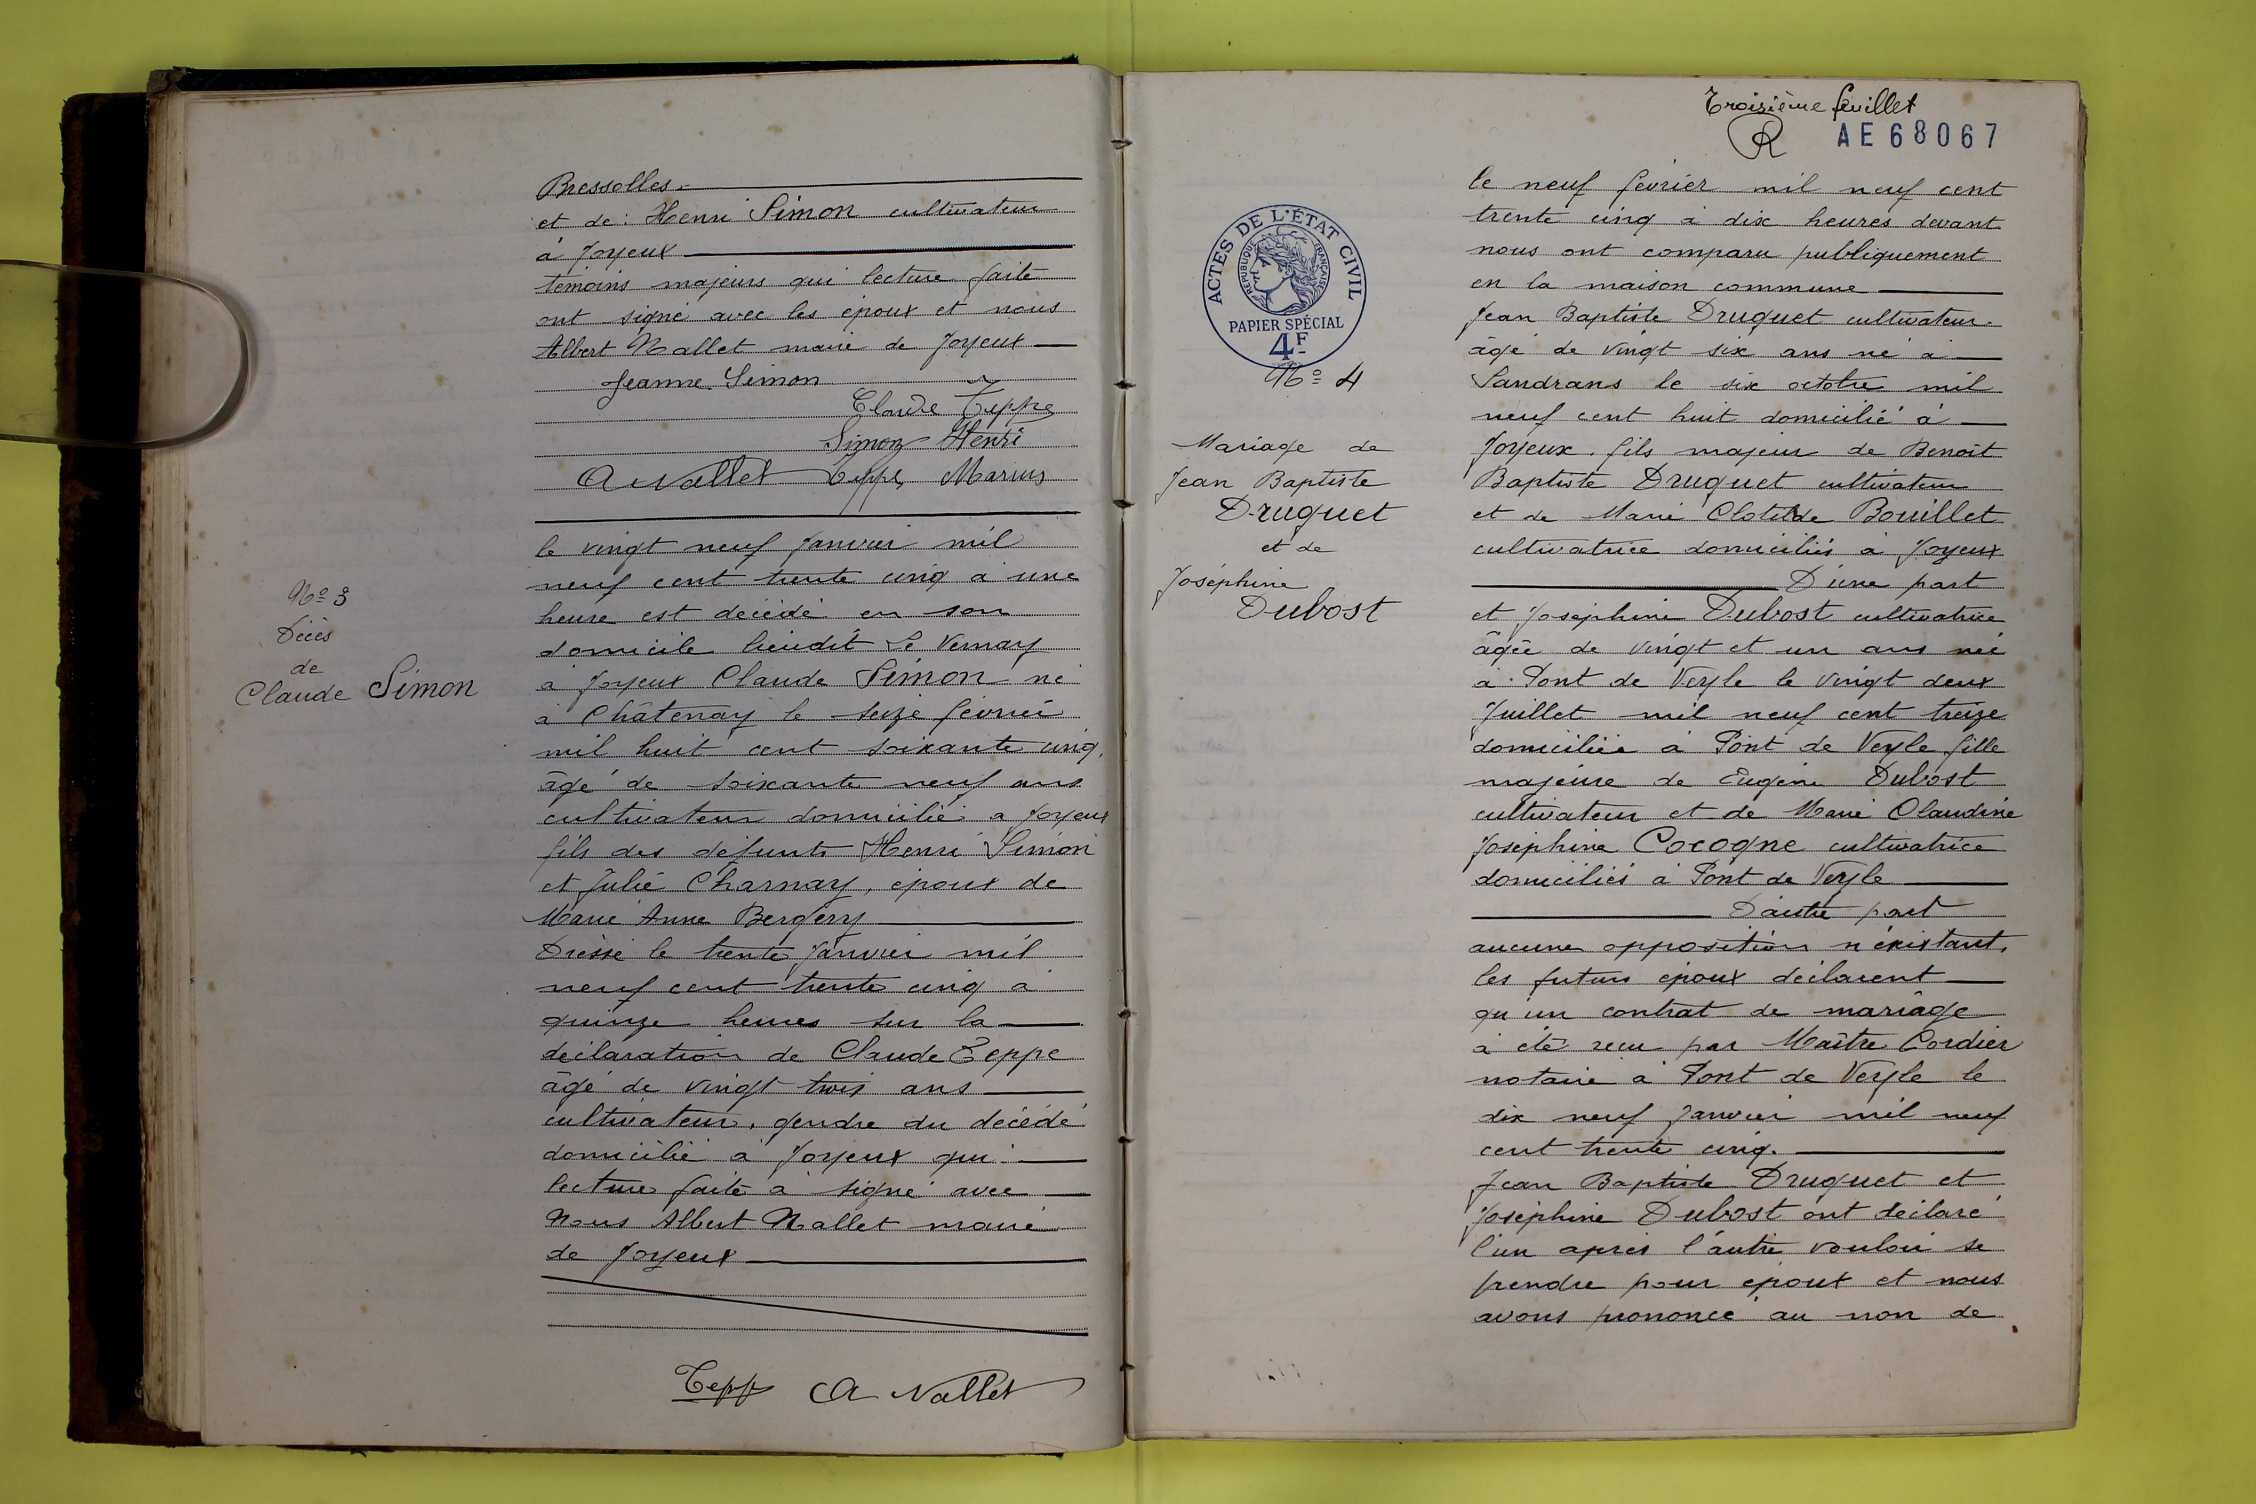 Bressolles.
et de : Henri Simon cultivateur
à Joyeux
témoins majeurs qui lecture faite
ont signé avec les époux et nous
Albert Nallet maire de Joyeux
Jeanne Simon
Claude Teppe
Simon Henri
A Nallet Teppe Marius
N° 3
Décès
de
Claude Simon
le vingt neuf Janvier mil
neuf cent trente cinq à une
heure est décédé en son
domicile lieudit Le Vernay
à Joyeux Claude Simon né
à Châtenay le seize février
mil huit cent soixante cinq,
âgé de soixante neuf ans
cultivateur domicilié à Joyeux
fils des défunts Henri Simon
et Julie Charnay, époux de
Marie Anne Bergery
Dressé le trente Janvier mil
neuf cent trente cinq à
quinze heures sur la
déclaration de Claude Teppe
âgé de vingt trois ans
cultivateur, gendre du décédé
domicilié à Joyeux qui
lecture faite a signé avec
Nous Albert Nallet maire
de Joyeux
Tepp A Nallet
Troisième feuillet
R AE68067
ACTES DE L'ÉTAT CIVIL
RÉPUBLIQUE FRANÇAISE
PAPIER SPÉCIAL
4F
N° 4
Mariage de
Jean Baptiste
Druguet
et de
Joséphine
Dubost
le neuf février mil neuf cent
trente cinq à dix heures devant
nous ont comparu publiquement
en la maison commune
Jean Baptiste Druguet cultivateur
âgé de vingt six ans né à
Sandrans le six octobre mil
neuf cent huit domicilié à
Joyeux. fils majeur de Benoit
Baptiste Druguet cultivateur
et de Marie Clotilde Bouillet
cultivatrice domiciliés à Joyeux
D'une part
et Joséphine Dubost cultivatrice
âgée de vingt et un ans née
à Pont de Veyle le vingt deux
Juillet mil neuf cent treize
domiciliée à Pont de Veyle fille
majeure de Eugène Dubost
cultivateur et de Marie Claudine
Joséphine Cocogne cultivatrice
domiciliés à Pont de Veyle
D'autre part
aucune opposition n'existant,
les futurs époux déclarent
qu'un contrat de mariage
à été reçu par Maître Cordier
notaire à Pont de Veyle le
dix neuf Janvier mil neuf
cent trente cinq.
Jean Baptiste Druguet et
Joséphine Dubost ont déclaré
l'un après l'autre vouloir se
prendre pour époux et nous
avons prononcé au non de